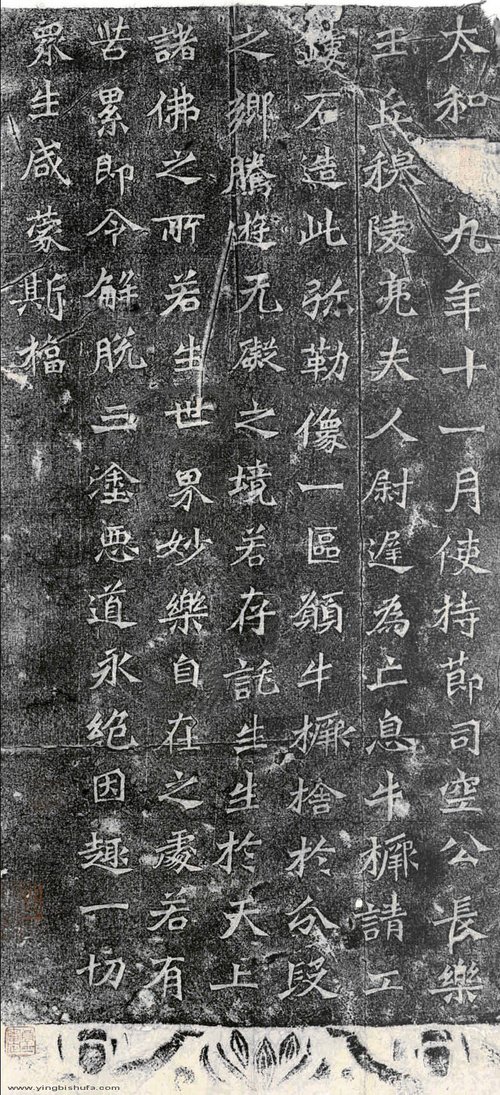 太和九年十一月使持節司空公長樂
王丘穆陵亮夫人尉遲為亡息牛橛請工
鏤石造此弥勒像一區願牛橛捨於分段
之鄉騰遊无礙之境若存託生生於天上
諸佛之所若生世界妙樂自在之處若有
苦累即令解脱三塗惡道永絶因趣一切
眾生咸蒙斯福
www.yingbishufa.com